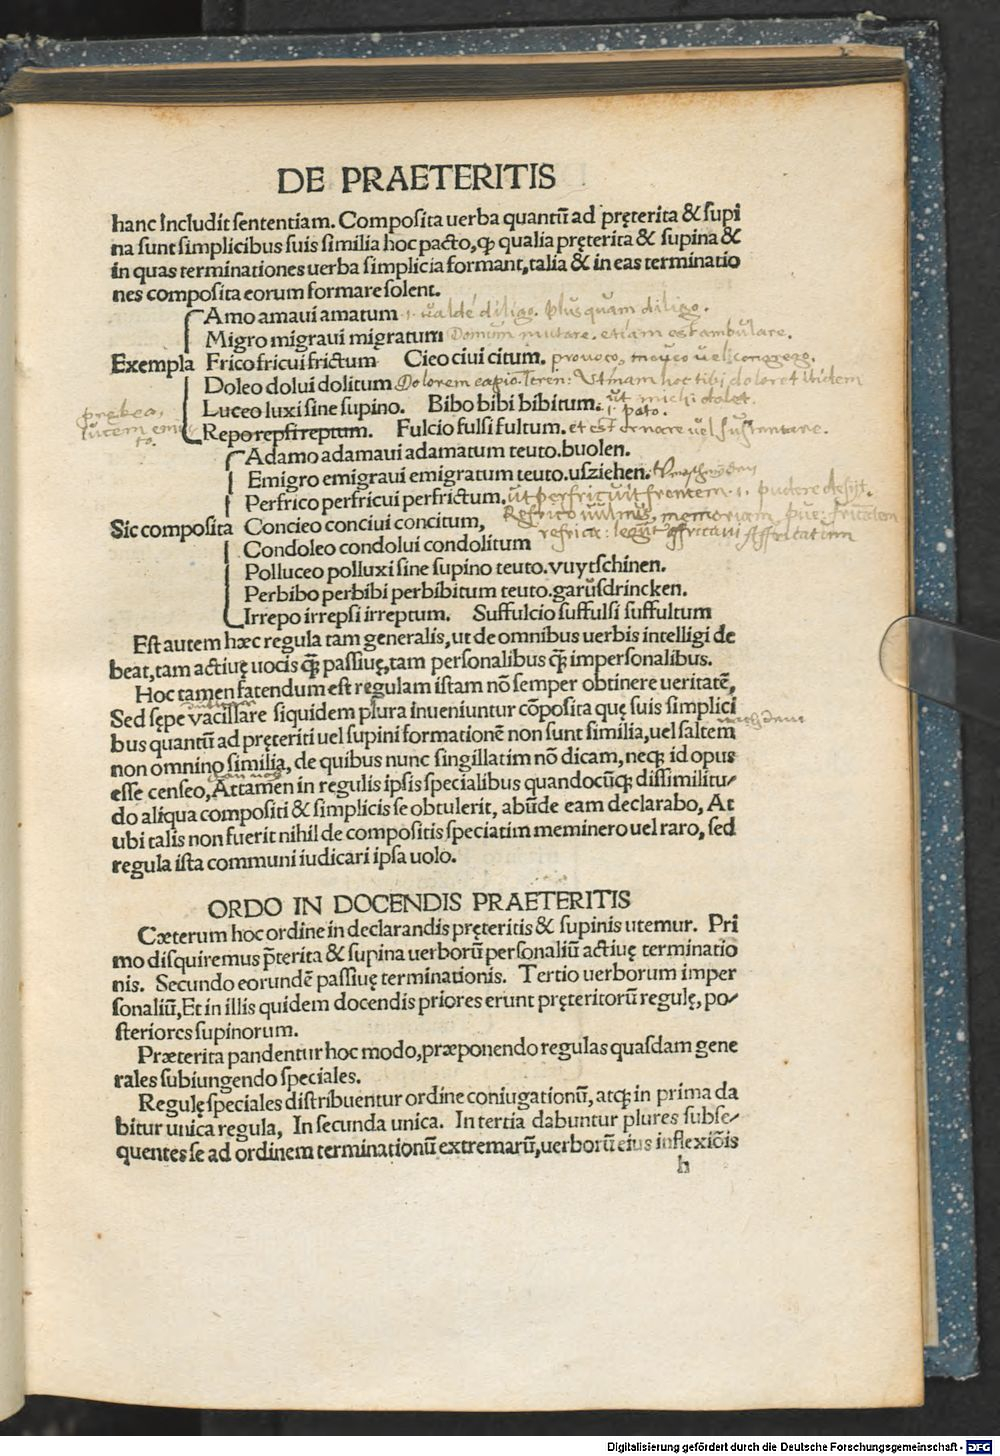 DE PRAETERITIS
hanc includit sententiam. Composita uerba quantũ ad pręterita & supi
na sunt simplicibus suis similia hoc pacto, ꝙ qualia pręterita & supina &
in quas terminationes uerba simplicia formant, talia & in eas terminatio
nes composita eorum formare solent.
Amo amaui amatum .i. ualde diligo. plus quam diligo.
Migro migraui migratum Domum mutare. etiam est ambulare.
Exempla Frico fricui frictum Cieo ciui citum. prouoco, moueo uel congrego.
Doleo dolui dolitum Dolorem capio. Teren: Utinam hoc tibi doleret itidem
ut michi dolet.
Luceo luxi sine supino. Bibo bibi bibitum. .i. poto.
prebeo,
lucem emit
to.
Repo repsi reptum. Fulcio fulsi fultum. et est ornare uel sustentare.
Adamo adamaui adamatum teuto. buolen.
Emigro emigraui emigratum teuto. usziehen.
Perfrico perfricui perfrictum. ut perfricuit frontem .i. pudere desijt.
Refrico uulnus, memoriam
Sic composita Concieo conciui concitum,
refrica: legit affricaui affricatum
Condoleo condolui condolitum
Polluceo polluxi sine supino teuto. vuytschinen.
Perbibo perbibi perbibitum teuto. garusdrincken.
Irrepo irrepsi irreptum. Suffulcio suffulsi suffultum
Est autem hæc regula tam generalis, ut de omnibus uerbis intelligi de
beat, tam actiuę uocis ꝗ̃ passiuę, tam personalibus ꝗ̃ impersonalibus.
Hoc tamen fatendum est regulam istam nõ semper obtinere ueritatẽ,
Sed sępe vacillare siquidem plura inueniuntur cõposita quę suis simplici
bus quantũ ad pręteriti uel supini formationẽ non sunt similia, uel saltem
non omnino similia, de quibus nunc singillatim nõ dicam, neqꝫ id opus
esse censeo, Attamen in regulis ipsis specialibus quandocũqꝫ dissimilitu⸗
do aliqua compositi & simplicis se obtulerit, abũde eam declarabo, At
ubi talis non fuerit nihil de compositis speciatim meminero uel raro, sed
regula ista communi iudicari ipsa uolo.
ORDO IN DOCENDIS PRAETERITIS
Cæterum hoc ordine in declarandis pręteritis & supinis utemur. Pri
mo disquiremus p̃terita & supina uerborũ personaliũ actiuę terminatio
nis. Secundo eorundẽ passiuę terminationis. Tertio uerborum imper
sonaliũ, Et in illis quidem docendis priores erunt pręteritorũ regulę, po⸗
steriores supinorum.
Præterita pandentur hoc modo, præponendo regulas quasdam gene
rales subiungendo speciales.
Regulę speciales distribuentur ordine coniugationũ, atqꝫ in prima da
bitur unica regula, In secunda unica. In tertia dabuntur plures subse⸗
quentes se ad ordinem terminationũ extremarũ, uerborũ eius inflexiõis
h
Digitalisierung gefördert durch die Deutsche Forschungsgemeinschaft - DFG